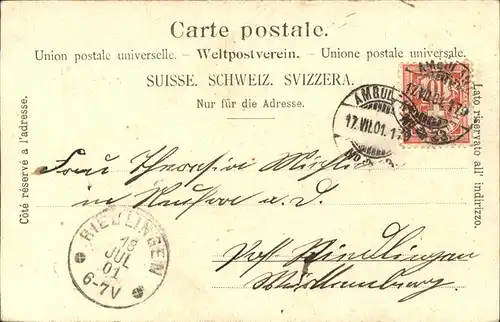 Carte postale.
Union postale universelle. – Weltpostverein. – Unione postale universale.
SUISSE. SCHWEIZ. SVIZZERA.
Nur für die Adresse.
Côté réservé à l'adresse.
Lato riservato all' indirizzo.
AMBUL
17.VII.01.
AMBUL
17.VII.01.
Frau
in a. D.
Post Riedlingen
Württemberg.
RIEDLINGEN
18
JUL
01
6-7V